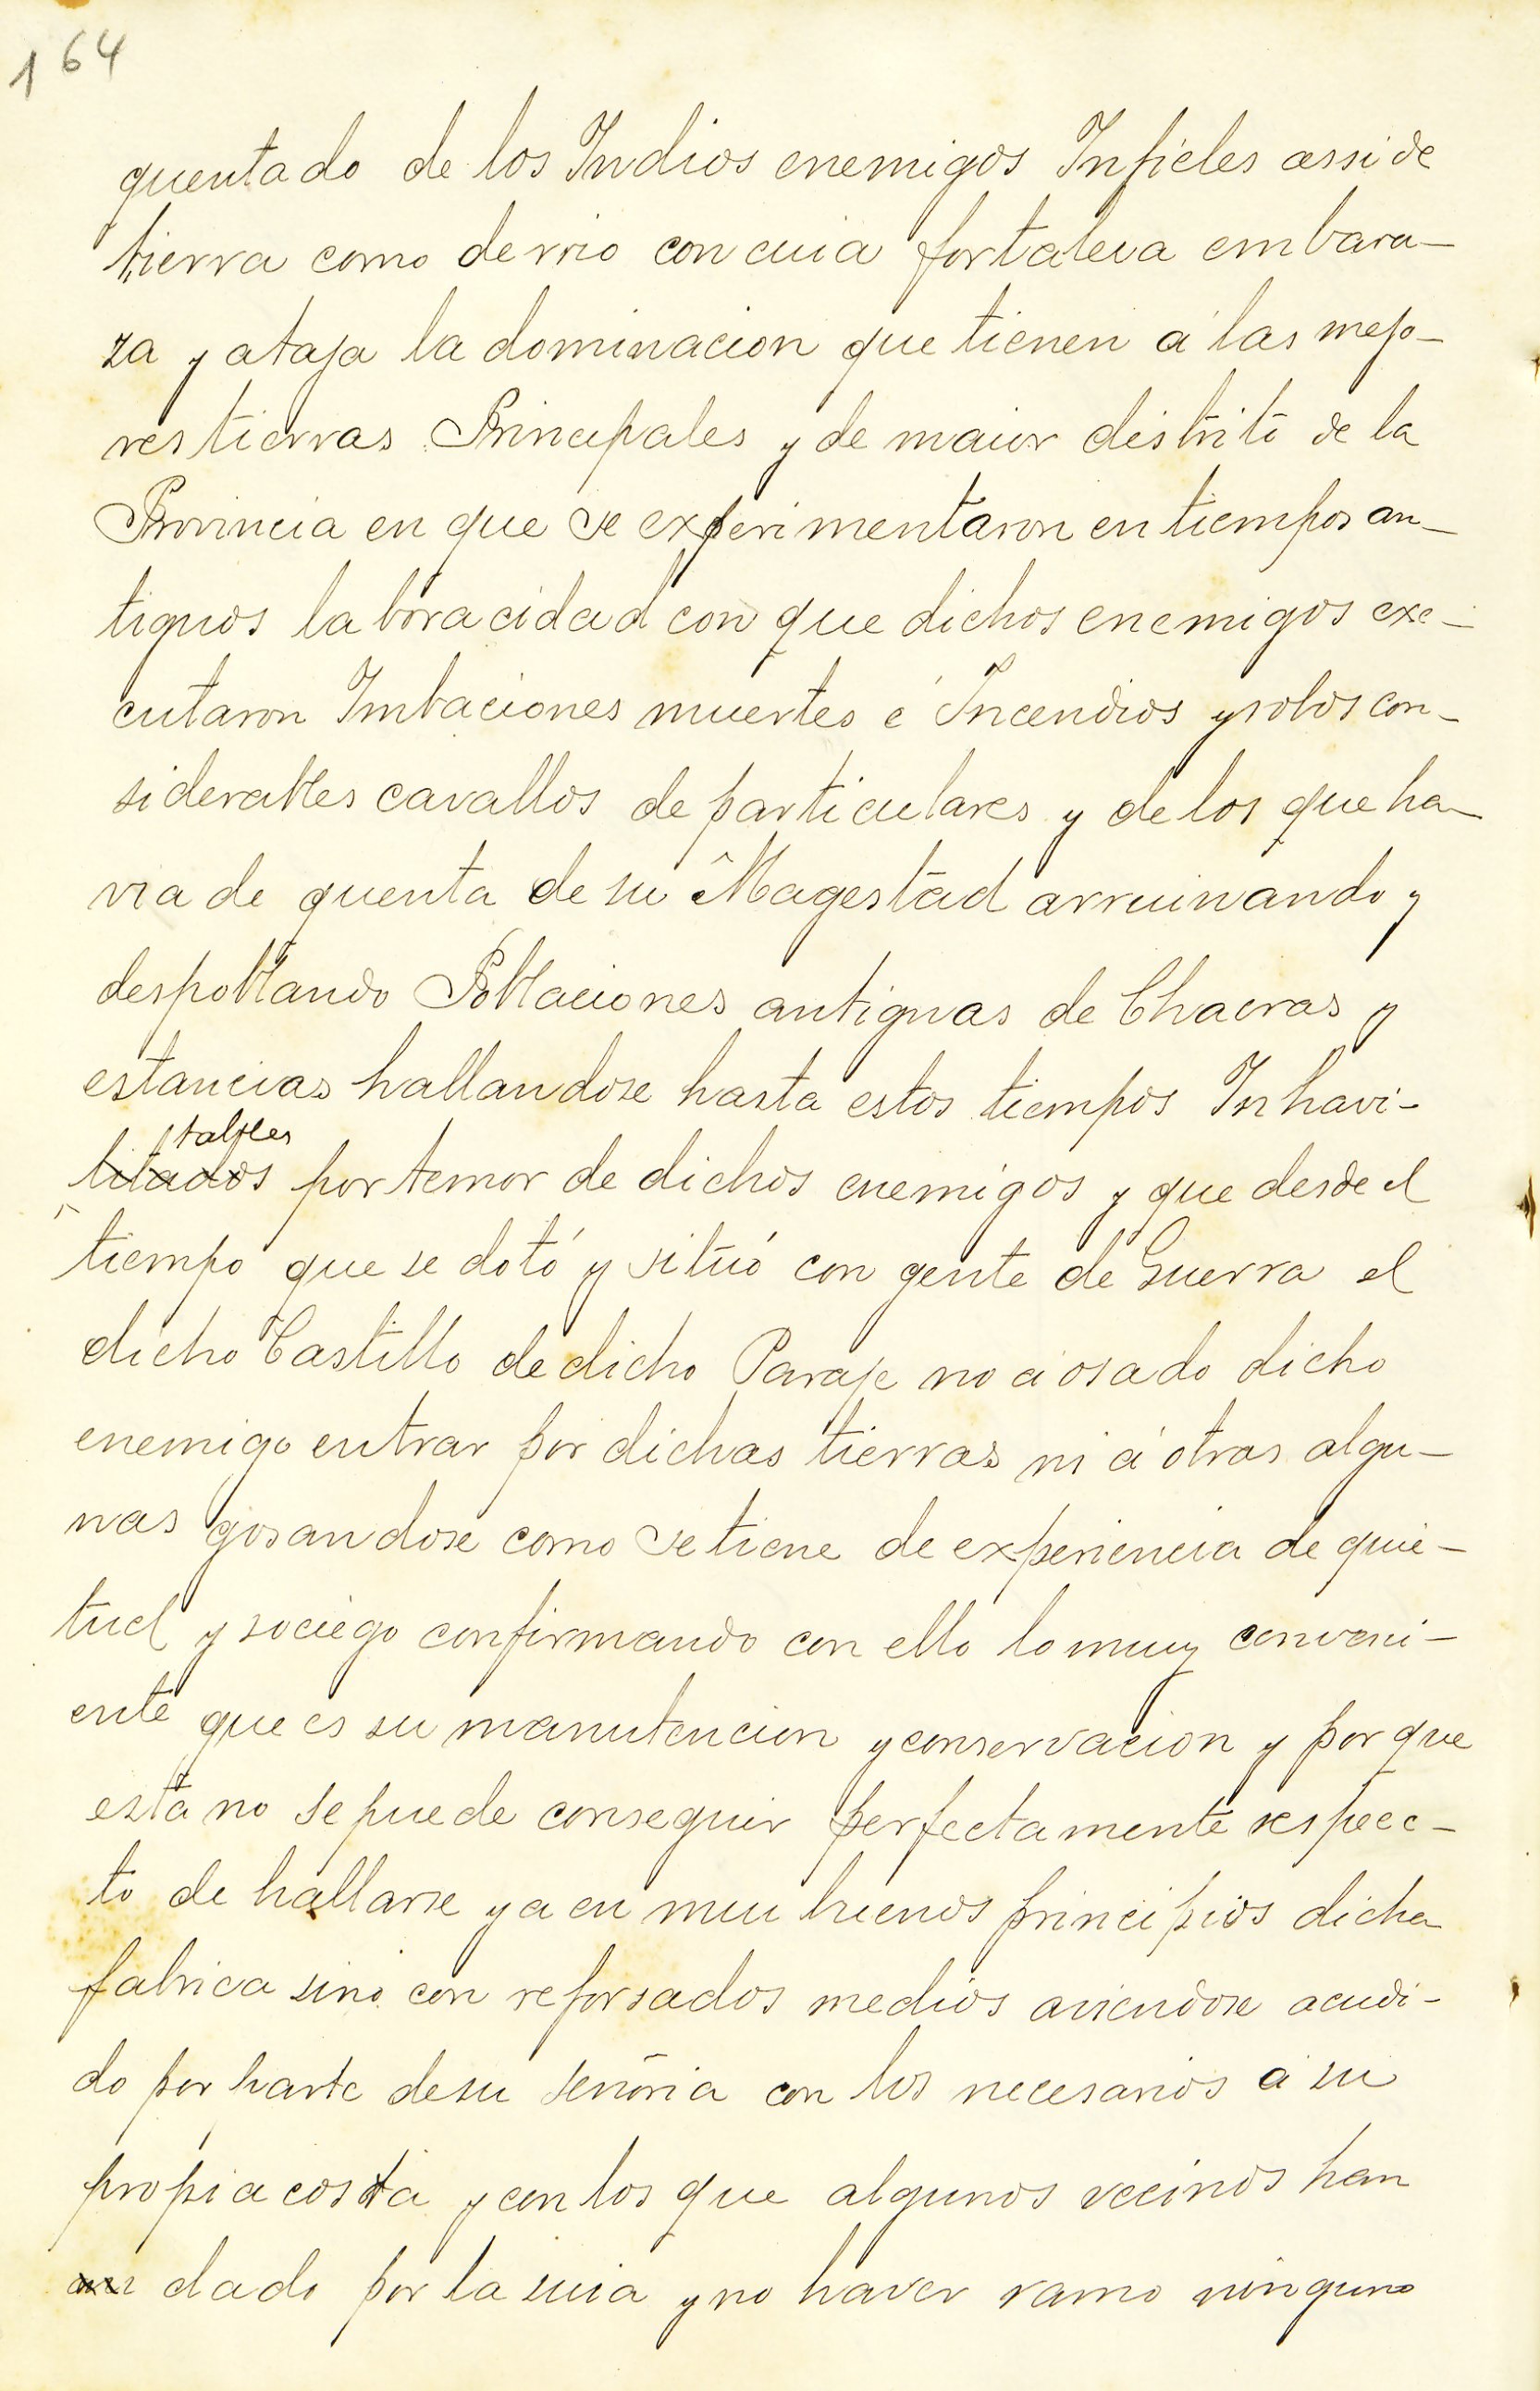 164
quentado de los Indios enemigos Infieles assi de
tierra como de rrio con cuia fortaleza embara-
za y ataja la dominacion que tienen á las mejo-
res tierras Principales y de maior distrito de la
Provincia en que se experimentaron en tiempos an-
tiguos la boracidad con que dichos enemigos exe-
cutaron Imbaciones muertes é Incendios y robos con-
siderables cavallos de particulares y de los que ha-
via de quenta de su Magestad arruinando y
despoblando Poblaciones antiguas de Chacras y
estancias hallandose hasta estos tiempos Inhavi-
tables
litados por temor de dichos enemigos y que desde el
tiempo que se dotó y sitúo con gente de Guerra el
dicho Castillo de dicho Paraje no á osado dicho
enemigo entrar por dichas tierras ni á otras algu-
nas gosandose como se tiene de experiencia de quie-
tud y sociego confirmando con ello lo muy conveni-
ente que es su manutencion y conservacion y por que
esta no se puede conseguir perfectamente respec-
to de hallarse ya en mui buenos principios dicha
fabrica sino con reforsados medios aviendose acudi-
do por parte de su señoria con los necesarios á su
propia costa y con los que algunos vecinos han
dado por la suia y no haver ramo ninguno